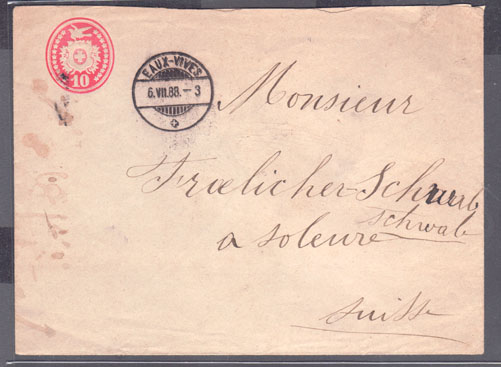 10
EAUX-VIVES
6.VII.88.-3
Monsieur
Frœlicher-Schwab
schwab
a soleure
suisse